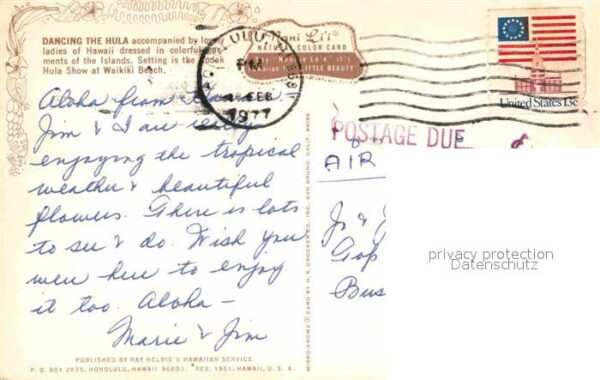 DANCING THE HULA accompanied by lovely
ladies of Hawaii dressed in colorful
ments of the Islands. Setting is the Kodak
Hula Show at Waikiki Beach.
Nani Li'i
NATURAL COLOR CARD
LITTLE BEAUTY
HONOLULU
PM
FEB
1977
United States 13c
POSTAGE DUE
AIR
Aloha from
Jim & I are really
enjoying the tropical
weather & beautiful
flowers. There is lots
to see & do. Wish you
were here to enjoy
it too. Aloha –
Marie & Jim
privacy protection
Datenschutz
MIRRO-KROME CARD BY H. S. CROCKER CO., INC. SAN BRUNO, CALIF.
PUBLISHED BY RAY HELBIG'S HAWAIIAN SERVICE
P. O. BOX 2835, HONOLULU, HAWAII 96803. REG. 1951, HAWAII, U. S. A